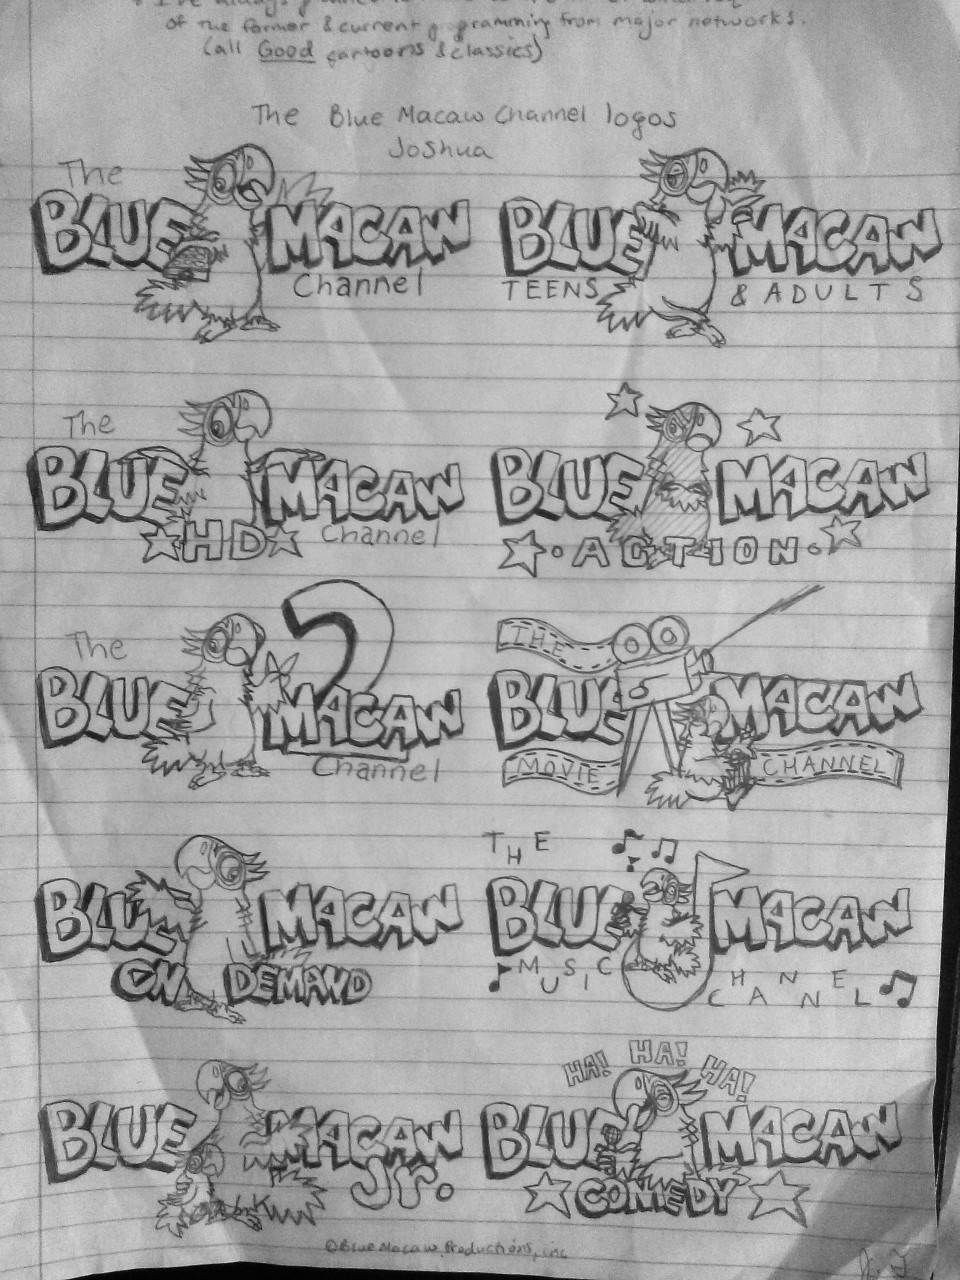 of the former & current programming from major networks.
(all Good cartoons & classics)
The Blue Macaw Channel logos
Joshua
The
BLUE MACAW
Channel
BLUE MACAW
TEENS & ADULTS
The
BLUE MACAW
HD Channel
BLUE MACAW
ACTION
The 2
BLUE MACAW
Channel
THE
BLUE MACAW
MOVIE CHANNEL
BLUE MACAW
ON DEMAND
THE
BLUE MACAW
MUSIC CHANNEL
BLUE MACAW
Jr.
HA! HA! HA!
BLUE MACAW
COMEDY
©Blue Macaw Productions, inc